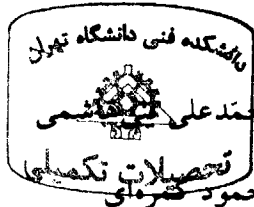 دانشکده فنی دانشگاه تهران
محمدعلی بنی‌هاشمی
تحصیلات تکمیلی
محمود کمره‌ای